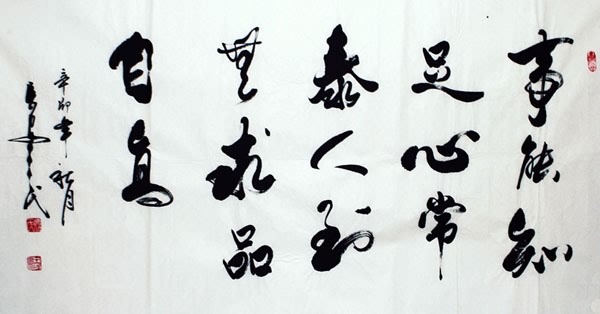 事能知
足心常
泰人到
無求品
自高
辛卯年秋月